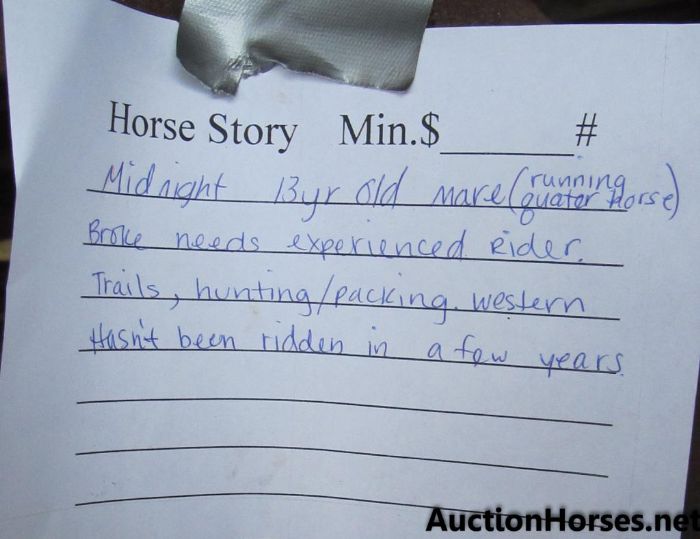 Horse Story Min.$______ #
Midnight 13yr old mare (running quater Horse)
Broke needs experienced Rider.
Trails, hunting/packing. western
Hasn't been ridden in a few years.
AuctionHorses.net